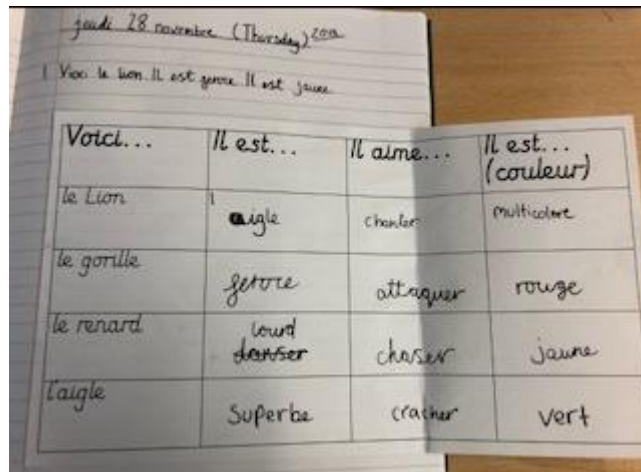 jeudi 28 novembre (Thursday)
1 Voici le lion. Il est feroce Il est jaune
Voici... Il est... Il aime... Il est... (couleur)
le Lion aigle chanter multicolore
le gorille feroce attaquer rouge
le renard lourd danser chaser jaune
l'aigle superbe cracher vert